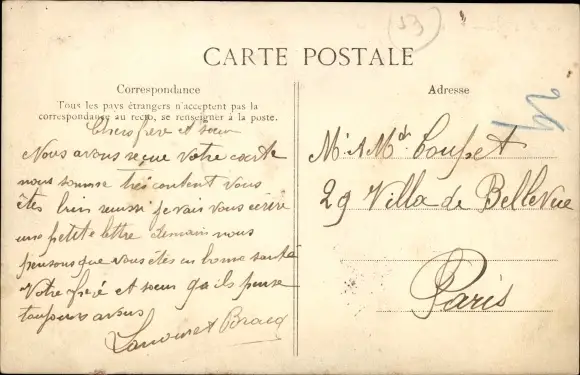 53
CARTE POSTALE
Correspondance
Tous les pays étrangers n'acceptent pas la
correspondance au recto, se renseigner à la poste.
Chers frere et sœur
Nous avons reçue votre carte
nous somme très content vous
êtes bien reussi je vais vous écrire
une petite lettre demain nous
pensons que vous êtes en bonne santé
Votre frère et sœur qu'ils pense
toujours a vous
Bracq
Adresse
Mr & Mde Coupet
29 Villa de Bellevue
Paris